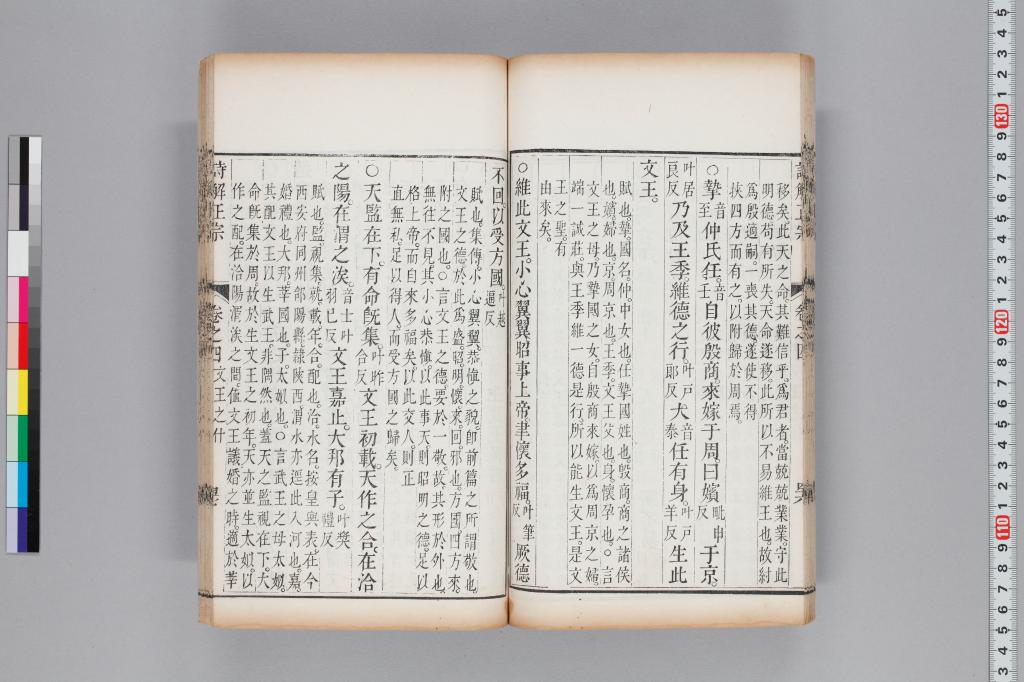 移矣此天之命其難信乎爲君者當兢兢業業守此
明德苟有所失天命遂移此所以不易維王也故紂
爲殷適嗣一喪其德遂使不得
挾四方而有之以附歸於周焉
○摯音至仲氏任音壬自彼殷商來嫁于周曰嬪毗申反于京
叶居良反乃及王季維德之行叶戶郎反大音泰任有身叶戶羊反生此
文王
賦也摯國名仲中女也任摯國姓也殷商商之諸侯
也嬪婦也京周京也王季文王父也身懷孕也○言
文王之母乃摯國之女自殷商來嫁以爲周京之婦
端一誠莊與王季維一德是行所以能生文王是文
王之聖有
由來矣
○維此文王小心翼翼昭事上帝聿懷多福叶筆反厥德
不回以受方國叶越逼反
賦也集傳小心翼翼恭慎之貌卽前篇之所謂敬也
文王之德於此爲盛昭明懷來回邪也方國四方來
附之國也○言文王之德要於一敬故其形於外也
無往不見其小心恭慎以此事天則昭明之德足以
格上帝而自來多福矣以此交人則正
直無私足以得人而受方國之歸矣
○天監在下有命旣集叶昨合反文王初載天作之合在洽
之陽在渭之涘音士叶羽已反文王嘉止大邦有子叶奬禮反
賦也監視集就載年合配也洽水名按皇輿表在今
西安府同州郃陽縣隸陝西渭水亦逕此入河也嘉
婚禮也大邦莘國也子太姒也○言武王之母太姒
其配文王以生武王非隅然也蓋天之監視在下大
命旣集於周故於生文王之初年天亦並生太姒以
作之配在洽陽渭涘之間值文王議婚之時適於莘
詩解正宗 卷之四文王之什